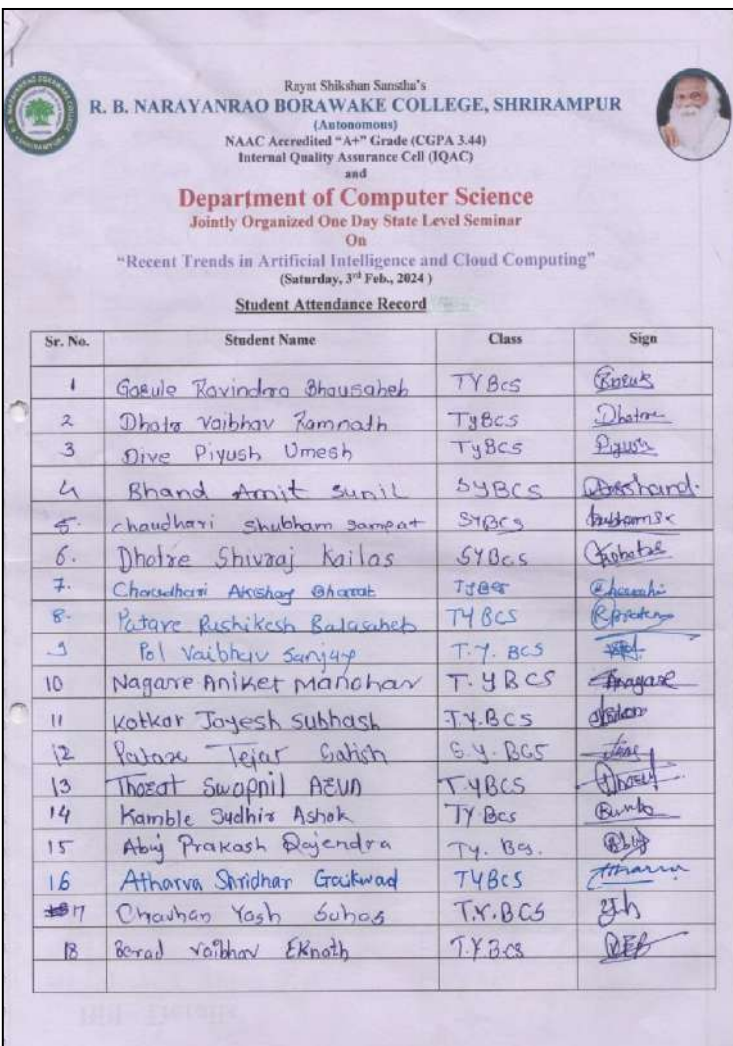 Rayat Shikshan Sanstha's
R. B. NARAYANRAO BORAWAKE COLLEGE, SHRIRAMPUR
(Autonomous)
NAAC Accredited "A+" Grade (CGPA 3.44)
Internal Quality Assurance Cell (IQAC)
and
Department of Computer Science
Jointly Organized One Day State Level Seminar
On
"Recent Trends in Artificial Intelligence and Cloud Computing"
(Saturday, 3rd Feb., 2024 )
Student Attendance Record
Sr. No. Student Name Class Sign
1 Gosule Ravindra Bhausaheb TYBcs
2 Dhotre Vaibhav Ramnath TyBcs Dhotre
3 Dive Piyush Umesh TyBcs Piyush
4 Bhand Amit Sunil SYBCS
5. chaudhari Shubham Sampat SYBCS
6. Dhotre Shivraj Kailas SYBcs
7. Chaudhari Akshay Bharat TYBCS
8. Patare Rushikesh Balasaheb TYBCS
9 Pol Vaibhav Sanjay T.Y. BCS
10 Nagare Aniket Manohar T. YBCS
11 Kotkar Jayesh Subhash T.Y.BCS
12 Patare Tejas Satish S.Y. BCS
13 Thorat Swapnil T.YBCS
14 Kamble Sudhir Ashok TY Bcs
15 Abuj Prakash Rajendra Ty. Bcs.
16 Atharva Shridhar Gaikwad TYBCS Atharva
17 Chavhan Yash Suhas T.Y.BCS
18 Berad Vaibhav Eknath T.Y.B.CS